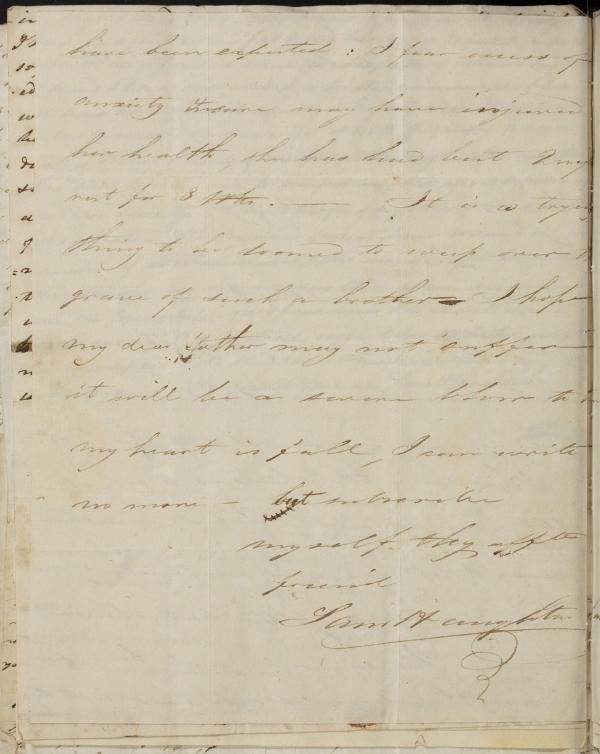 have been expected : I fear excess of
anxiety may have injured
her health, she has had but
rest for 3 — It is a trying
thing to be doomed to weep over
grave of such a brother — I hope
my dear father may not suffer
it will be a severe blow to
my heart is full, I can write
no more — but subscribe
myself thy affte
friend
Saml Haughton